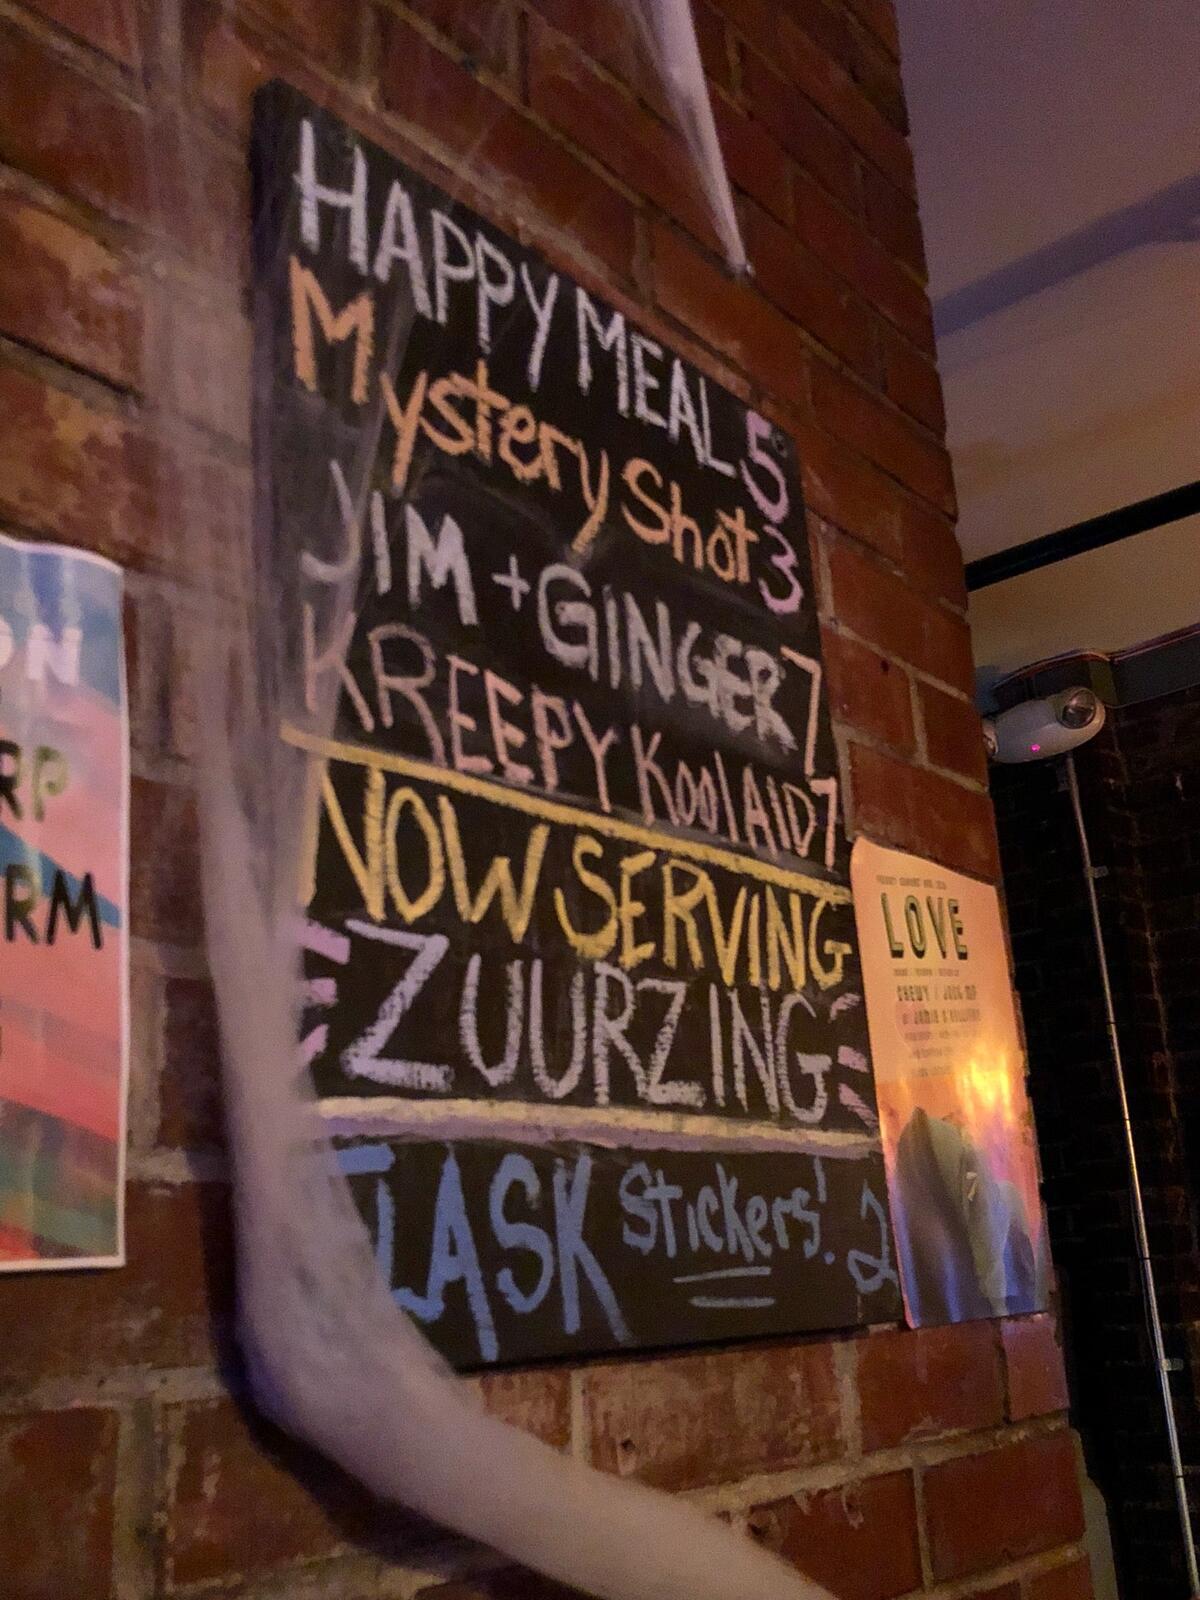 HAPPY MEAL 5
Mystery Shot 3
JIM + GINGER 7
KREEPY KoolAID 7
NOW SERVING
ZUURZING
FLASK Stickers! 2
ON
RP
RM
LOVE
CHEWY /